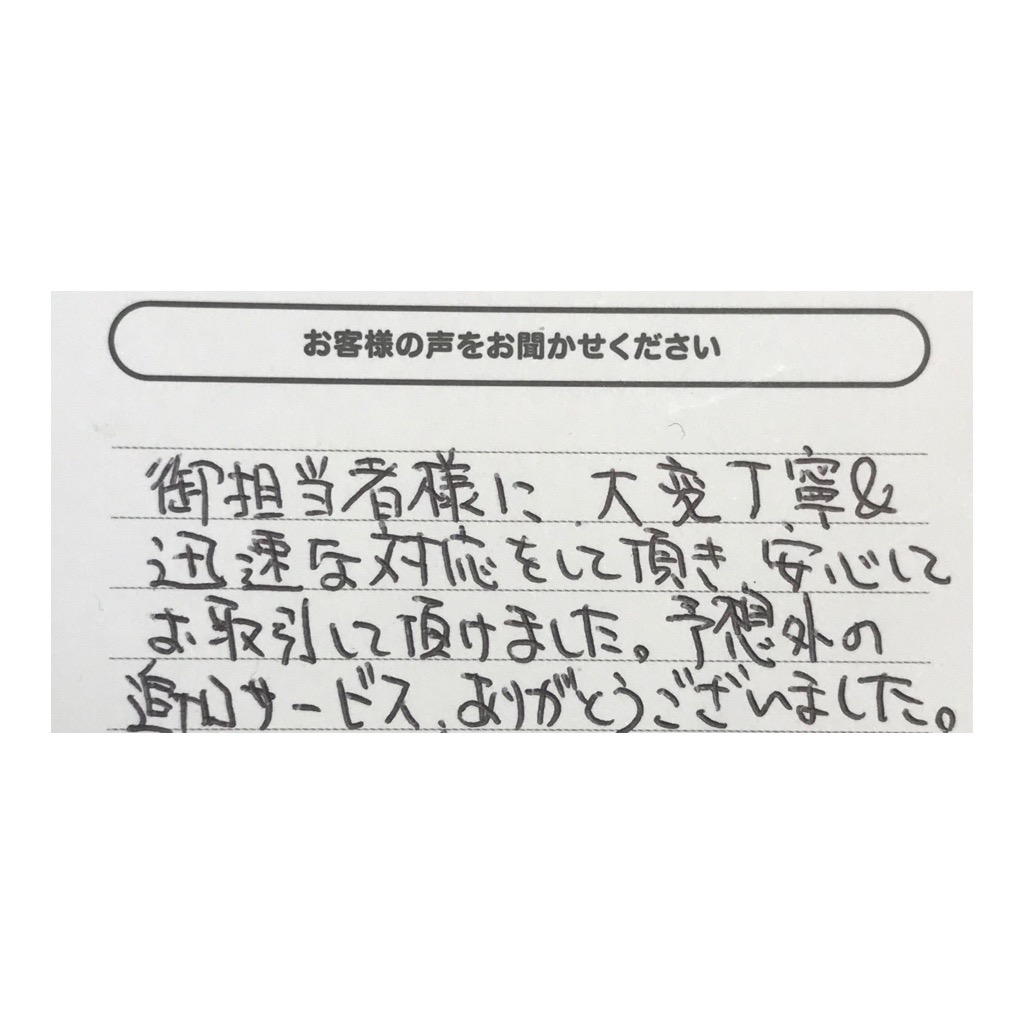 お客様の声をお聞かせください
御担当者様に、大変丁寧&
迅速な対応をして頂き、安心して
お取引して頂けました。予想外の
追加サービス、ありがとうございました。